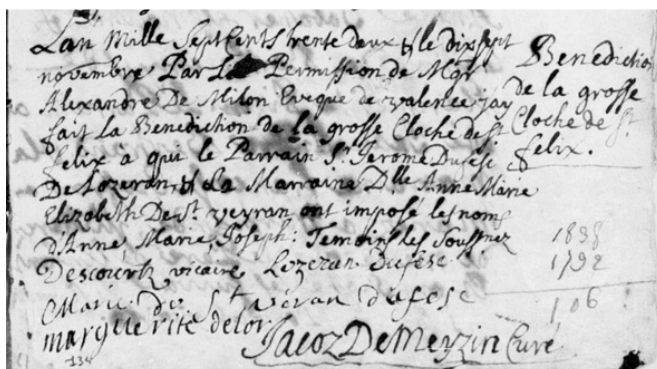 Lan Mille Sept Cents trente deux & le dix sept
novembre Par La Permission de Mgr
Alexandre De Milon Eveque de valence jay
fait La Benediction de la grosse Cloche de st
felix à qui le Parrain Sr. Jerome Dufesé
De Lozeran & La Marraine Dlle Anne Marie
Elizabeth De st. veyran ont imposé les noms
d'Anne Marie Joseph: Temoins les Soussnez
Descouertz vicaire Lozeran dufesé
Marie de st veran dufese
marguerite delor
Jacoz De Meyzin Curé
134
Benediction
de la grosse
Cloche de st
felix.
1838
1732
106